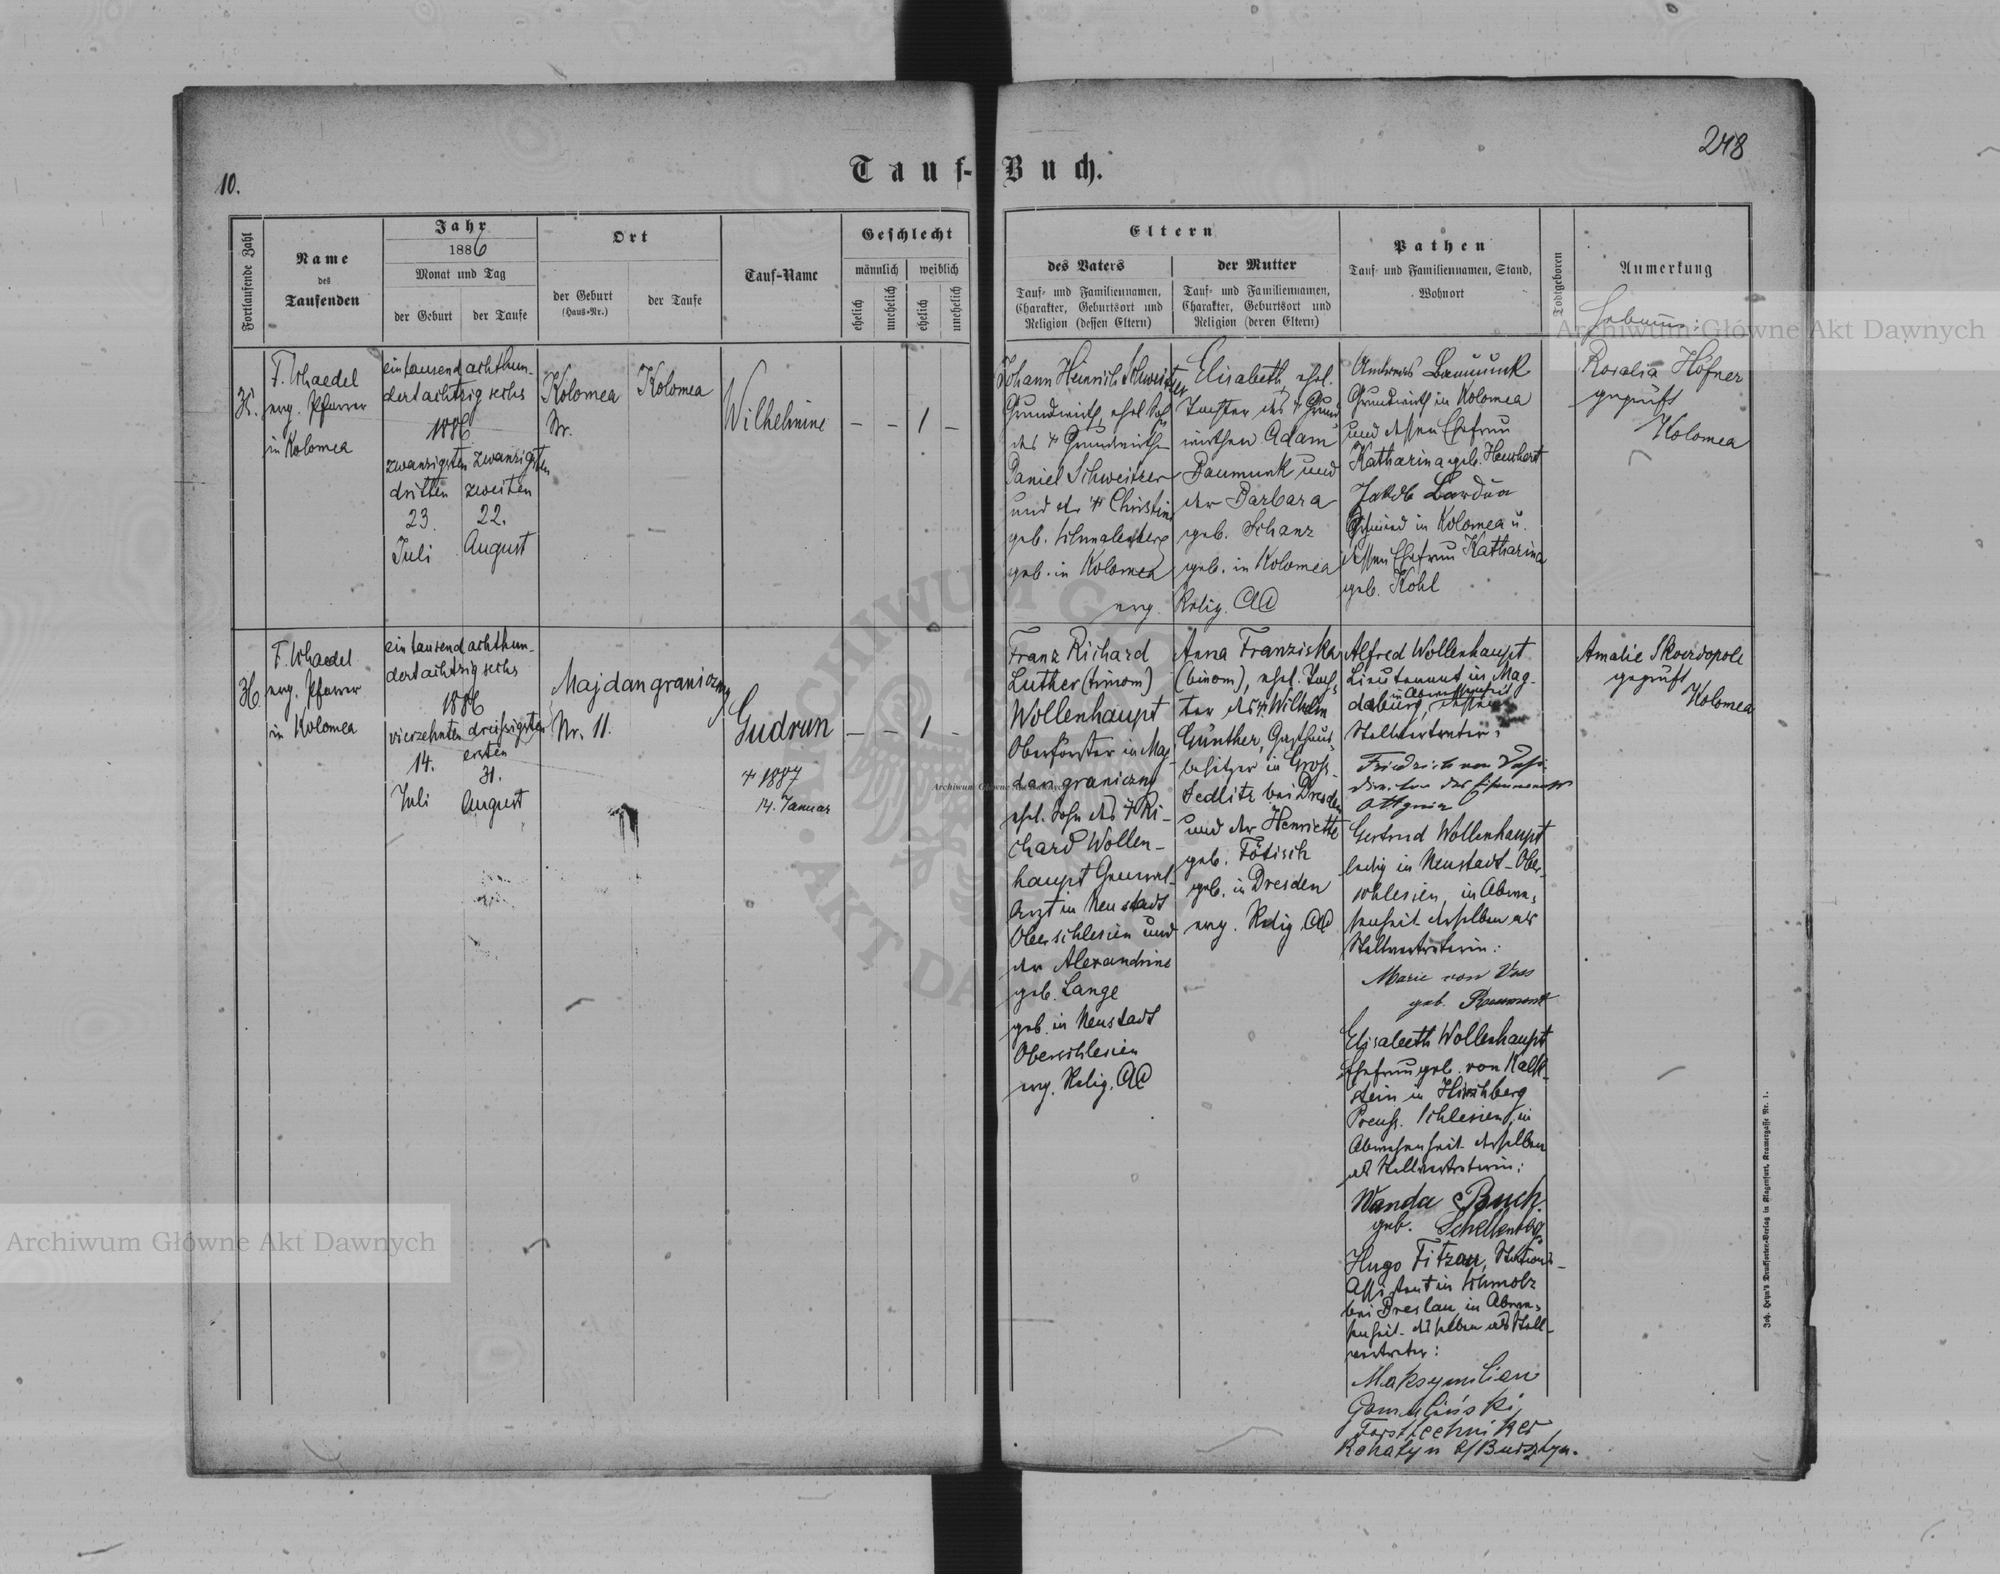 10.
248
Tauf-Buch.
Fortlaufende Zahl
Name
des
Taufenden
Jahr
1886
Monat und Tag
der Geburt
der Taufe
Ort
der Geburt
(Haus-Nr.)
der Taufe
Tauf-Name
Geschlecht
männlich
weiblich
ehelich
unehelich
ehelich
unehelich
Eltern
des Vaters
Tauf- und Familiennamen,
Charakter, Geburtsort und
Religion (dessen Eltern)
der Mutter
Tauf- und Familiennamen,
Charakter, Geburtsort und
Religion (deren Eltern)
Pathen
Tauf- und Familiennamen, Stand,
Wohnort
Todtgeboren
Anmerkung
Hebamme:
35.
evg. Pfarrer
in Kolomea
eintausend achthun-
dertachtzig sechs
1886
zwanzigsten
dritten
23.
Juli
zwanzigsten
zweiten
22.
August
Kolomea
Nr.
Kolomea
Wilhelmine
— — 1 —
Johann Heinrich Schweitzer
Grundwirth, ehel. Sohn
des † Grundwirthen
Daniel Schweitzer
und der † Christine
geb.
geb. in Kolomea
evg.
Elisabeth, ehel.
Tochter des † Grund-
wirthen Adam
Baumunk und
der Barbara
geb. Schanz
geb. in Kolomea
Relig. AC
Andreas Baumunk
Grundwirth in Kolomea
und dessen Ehefrau
Katharina geb.
Jakob
in Kolomea u.
dessen Ehefrau Katharina
geb. Kohl
Rosalia Höfner
geprüft
Kolomea
36.
evg. Pfarrer
in Kolomea
eintausend achthun-
dertachtzig sechs
1886
vierzehnten
14.
Juli
dreissigsten
ersten
31.
August
Majdan graniczny
Nr. 11.
Gudrun
† 1887
14. Januar
— — 1 —
Franz Richard
Luther (trinom)
Wollenhaupt
Oberförster in Maj-
dan graniczny
ehel. Sohn des † Ri-
chard Wollen-
haupt General-
Arzt in Neustadt
Oberschlesien und
der Alexandrine
geb. Lange
geb. in Neustadt
Oberschlesien
evg. Relig. AC
Anna Franziska
(binom), ehel. Toch-
ter des † Wilhelm
Günther, Gasthaus-
besitzer in Gross-
Sedlitz bei Dresden
und der Henriette
geb. Fötisch
geb. in Dresden
evg. Relig AC
Alfred Wollenhaupt
Lieutenant in Mag-
deburg, in Abwesenheit dessen
Stellvertreter:
Friedrich von
Gertrud Wollenhaupt
ledig in Neustadt-Ober-
schlesien, in Abwe-
senheit derselben als
Stellvertreterin:
Marie von Vass
geb.
Elisabeth Wollenhaupt
Ehefrau geb. von Kalk-
stein in Hirschberg
Preuss. Schlesien, in
Abwesenheit derselben
als Stellvertreterin:
Wanda Buch
geb. Schellenberg
Hugo Fitzau, Stations-
Assistent in Schmolz
bei Breslau, in Abwe-
senheit desselben als Stell-
vertreter:
Maksymilian
Forsttechniker
Rohatyn b/Bursztyn.
Amalie
geprüft
Kolomea
Joh. Heyn's Drucksorten-Verlag in Klagenfurt, Kramergasse Nr. 1.
Archiwum Główne Akt Dawnych
Archiwum Główne Akt Dawnych
Archiwum Główne Akt Dawnych